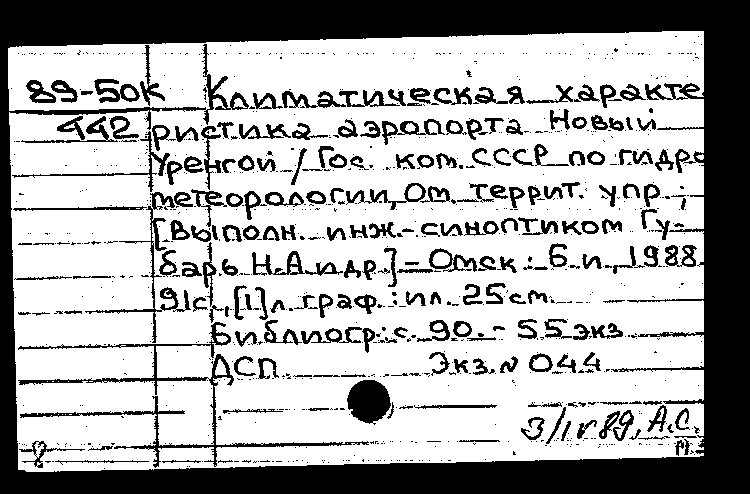 89-50К Климатическая характе
442 ристика аэропорта Новый
Уренгой / Гос. ком. СССР по гидро
метеорологии, Ом. террит. упр.;
[Выполн. инж.-синоптиком Гу-
барь Н.А и др.] - Омск : Б. и., 1988.
91с., [1] л. граф. : ил. 25 см.
Библиогр: с. 90. - 55 экз
ДСП Экз. № 044
3/IV 89, А.С.
8